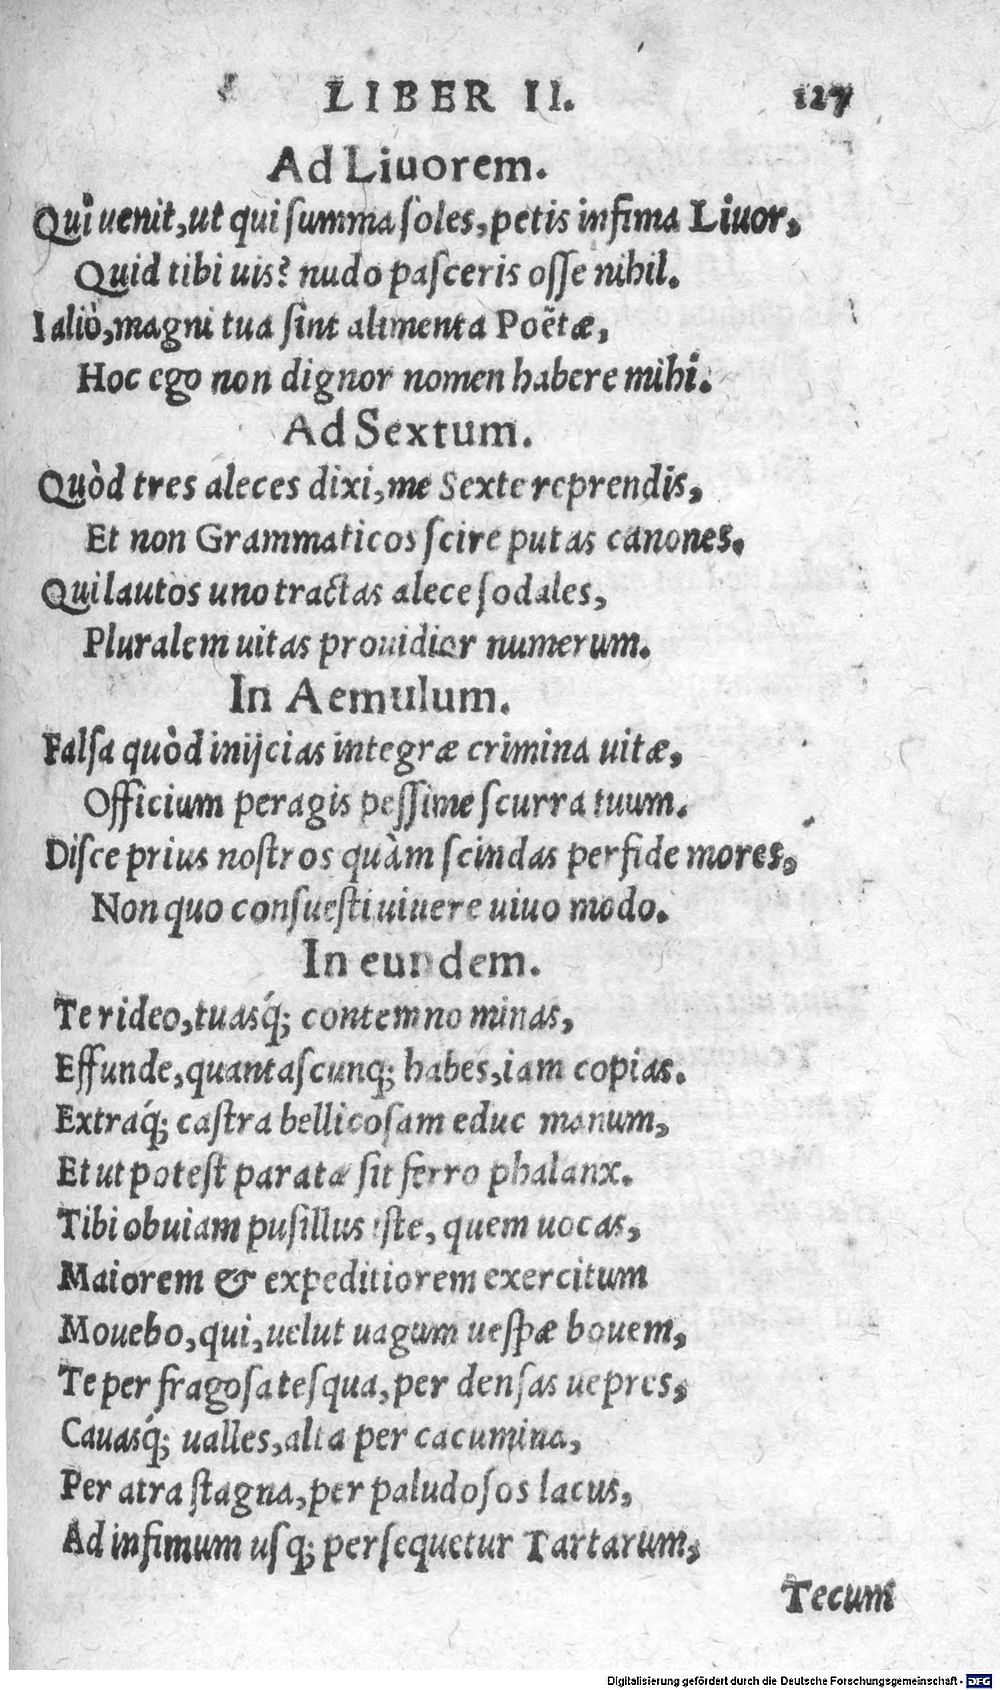 LIBER II. 127
Ad Liuorem.
Quì uenit, ut qui summa soles, petis infima Liuor,
Quid tibi uis? nudo pasceris osse nihil.
I aliò, magni tua sint alimenta Poëtæ,
Hoc ego non dignor nomen habere mihi.
Ad Sextum.
Quòd tres aleces dixi, me Sexte reprendis,
Et non Grammaticos scire putas canones.
Qui lautos uno tractas alece sodales,
Pluralem uitas prouidior numerum.
In Aemulum.
Falsa quòd inijcias integræ crimina uitæ,
Officium peragis pessime scurra tuum.
Disce prius nostros quàm scindas perfide mores,
Non quo consuesti uiuere uiuo modo.
In eundem.
Te rideo, tuasq́; contemno minas,
Effunde, quantascunq; habes, iam copias.
Extraq́; castra bellicosam educ manum,
Et ut potest parata sit ferro phalanx.
Tibi obuiam pusillus iste, quem uocas,
Maiorem & expeditiorem exercitum
Mouebo, qui, uelut uagum uespæ bouem,
Te per fragosa tesqua, per densas uepres,
Cauasq́; ualles, alta per cacumina,
Per atra stagna, per paludosos lacus,
Ad infimum usq; persequetur Tartarum,
Tecum
Digitalisierung gefördert durch die Deutsche Forschungsgemeinschaft - DFG